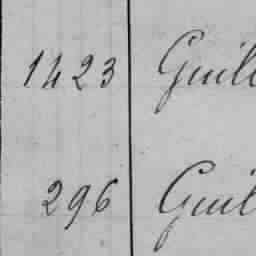 1423 Guill
296 Guil